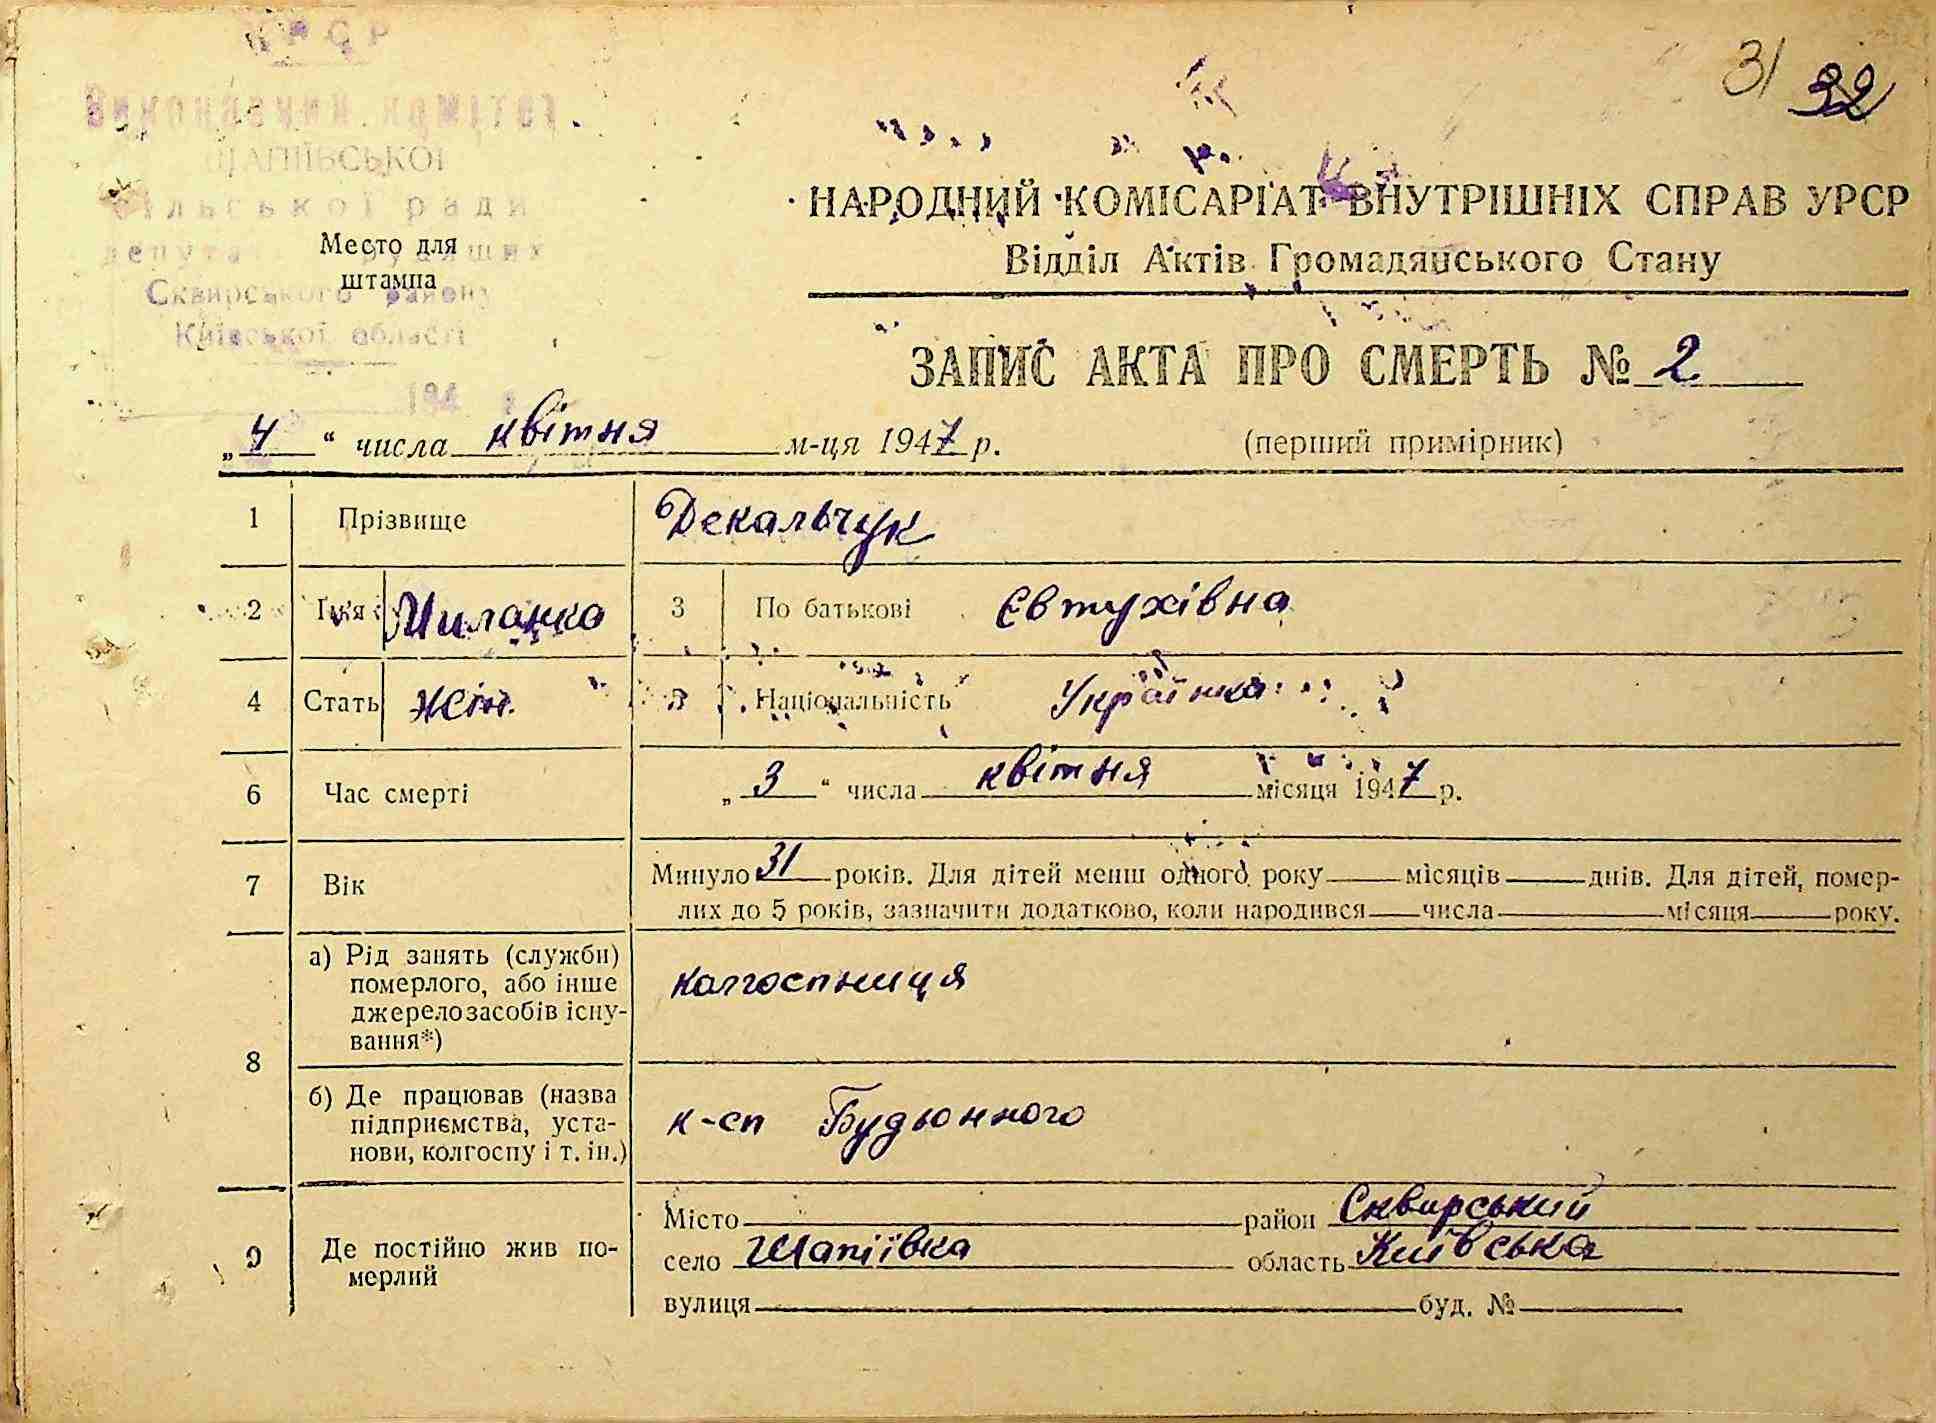 УРСР
Виконавчий комітет
ШАПІЇВСЬКОЇ
сільської ради
депутатів трудящих
Сквирського району
Київської області
194 р.
Место для
штампа
31 32
НАРОДНИЙ КОМІСАРІАТ ВНУТРІШНІХ СПРАВ УРСР
Відділ Актів Громадянського Стану
ЗАПИС АКТА ПРО СМЕРТЬ № 2
„4“ числа квітня м-ця 1947 р. (перший примірник)
1 Прізвище Декальчук
2 Ім'я Миланка 3 По батькові Євтухівна
4 Стать жін. 5 Національність Українка
6 Час смерті „3“ числа квітня місяця 1947 р.
7 Вік Минуло 31 років. Для дітей менш одного року місяців днів. Для дітей, помер-
лих до 5 років, зазначити додатково, коли народився числа місяця року.
8 а) Рід занять (служби)
померлого, або інше
джерело засобів існу-
вання*) колгоспниця
б) Де працював (назва
підприємства, уста-
нови, колгоспу і т. ін.) к-сп Будьонного
9 Де постійно жив по-
мерлий
Місто район Сквирський
село Шапіївка область Київська
вулиця буд. №